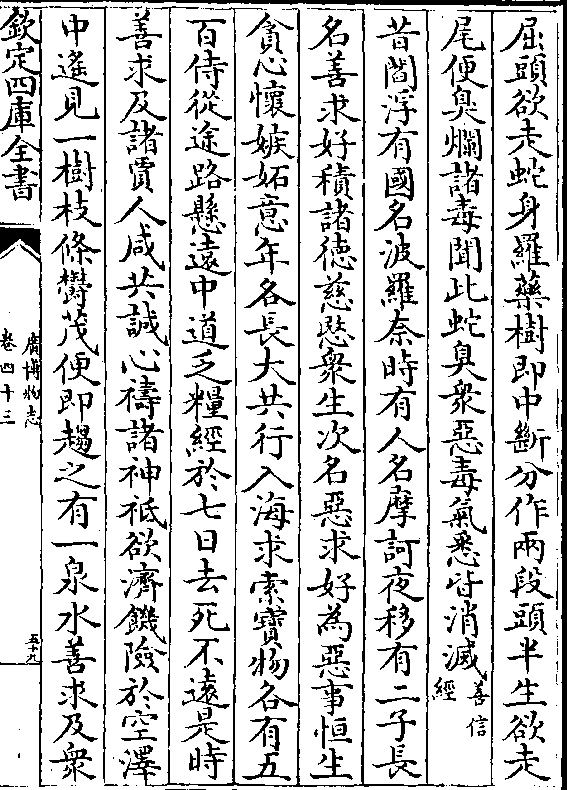 屈頭欲走蛇身羅藥樹即中斷分作兩段頭半生欲走
尾便臭爛諸毒聞此蛇臭衆惡毒氣悉皆消滅善信經
昔閻浮有國名波羅奈時有人名摩訶夜移有二子長
名善求好積諸德慈愍衆生次名惡求好為惡事恒生
貪心懷嫉妬意年各長大共行入海求索寶物各有五
百侍從途路懸遠中道乏糧經於七日去死不遠是時
善求及諸賈人咸共誠心禱諸神祗欲濟饑險於空澤
中遙見一樹枝條欝茂便即趨之有一泉水善求及衆
欽定四庫全書
廣博物志
卷四十三
五十九